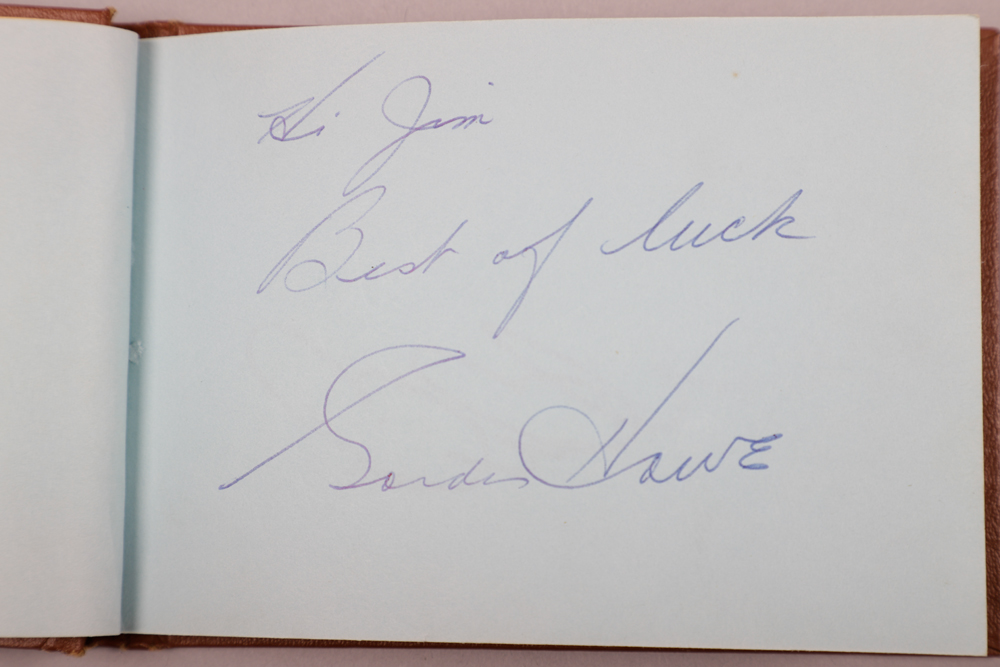 Hi Jim
Best of luck
Gordie Howe